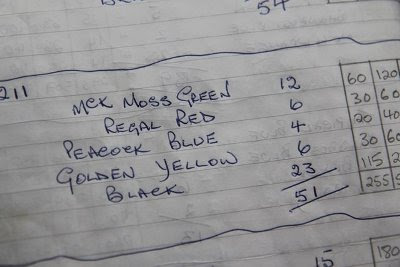 54
211
MCK MOSS GREEN 12 60 120
REGAL RED 6 30 60
PEACOCK BLUE 4 20 40
GOLDEN YELLOW 6 30 60
BLACK 23 115
51 255
15 180